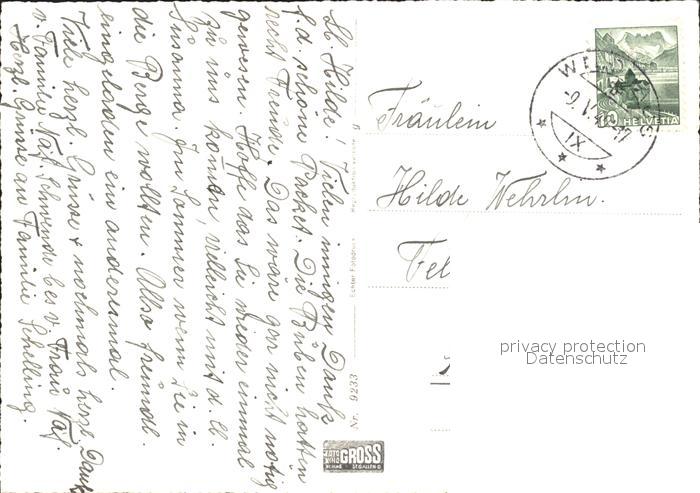 Lb. Hilde! Vielen innigen Dank
f. d. schöne Packet. Die Buben hatten
recht Freude. Das wäre gar nicht nötig
gewesen. Hoffe das Sie wieder einmal
zu uns kommen, vielleicht mit d. lb.
Susanna. Im Sommer wenn Sie in
die Berge wollten. Also freundl.
eingeladen ein andermal.
Viele herzl. Grüsse + nochmals herzl. Dank
v. Familie Näf. Schwende bes v. Frau Näf.
Herzl. Grüsse an Familie Schelling.
Fräulein
Hilde Wehrlin.
Fel
HELVETIA
10
XI
Echter Fotodruck
Nr. 9233
FOTO
GROSS
ST. GALLEN
privacy protection
Datenschutz